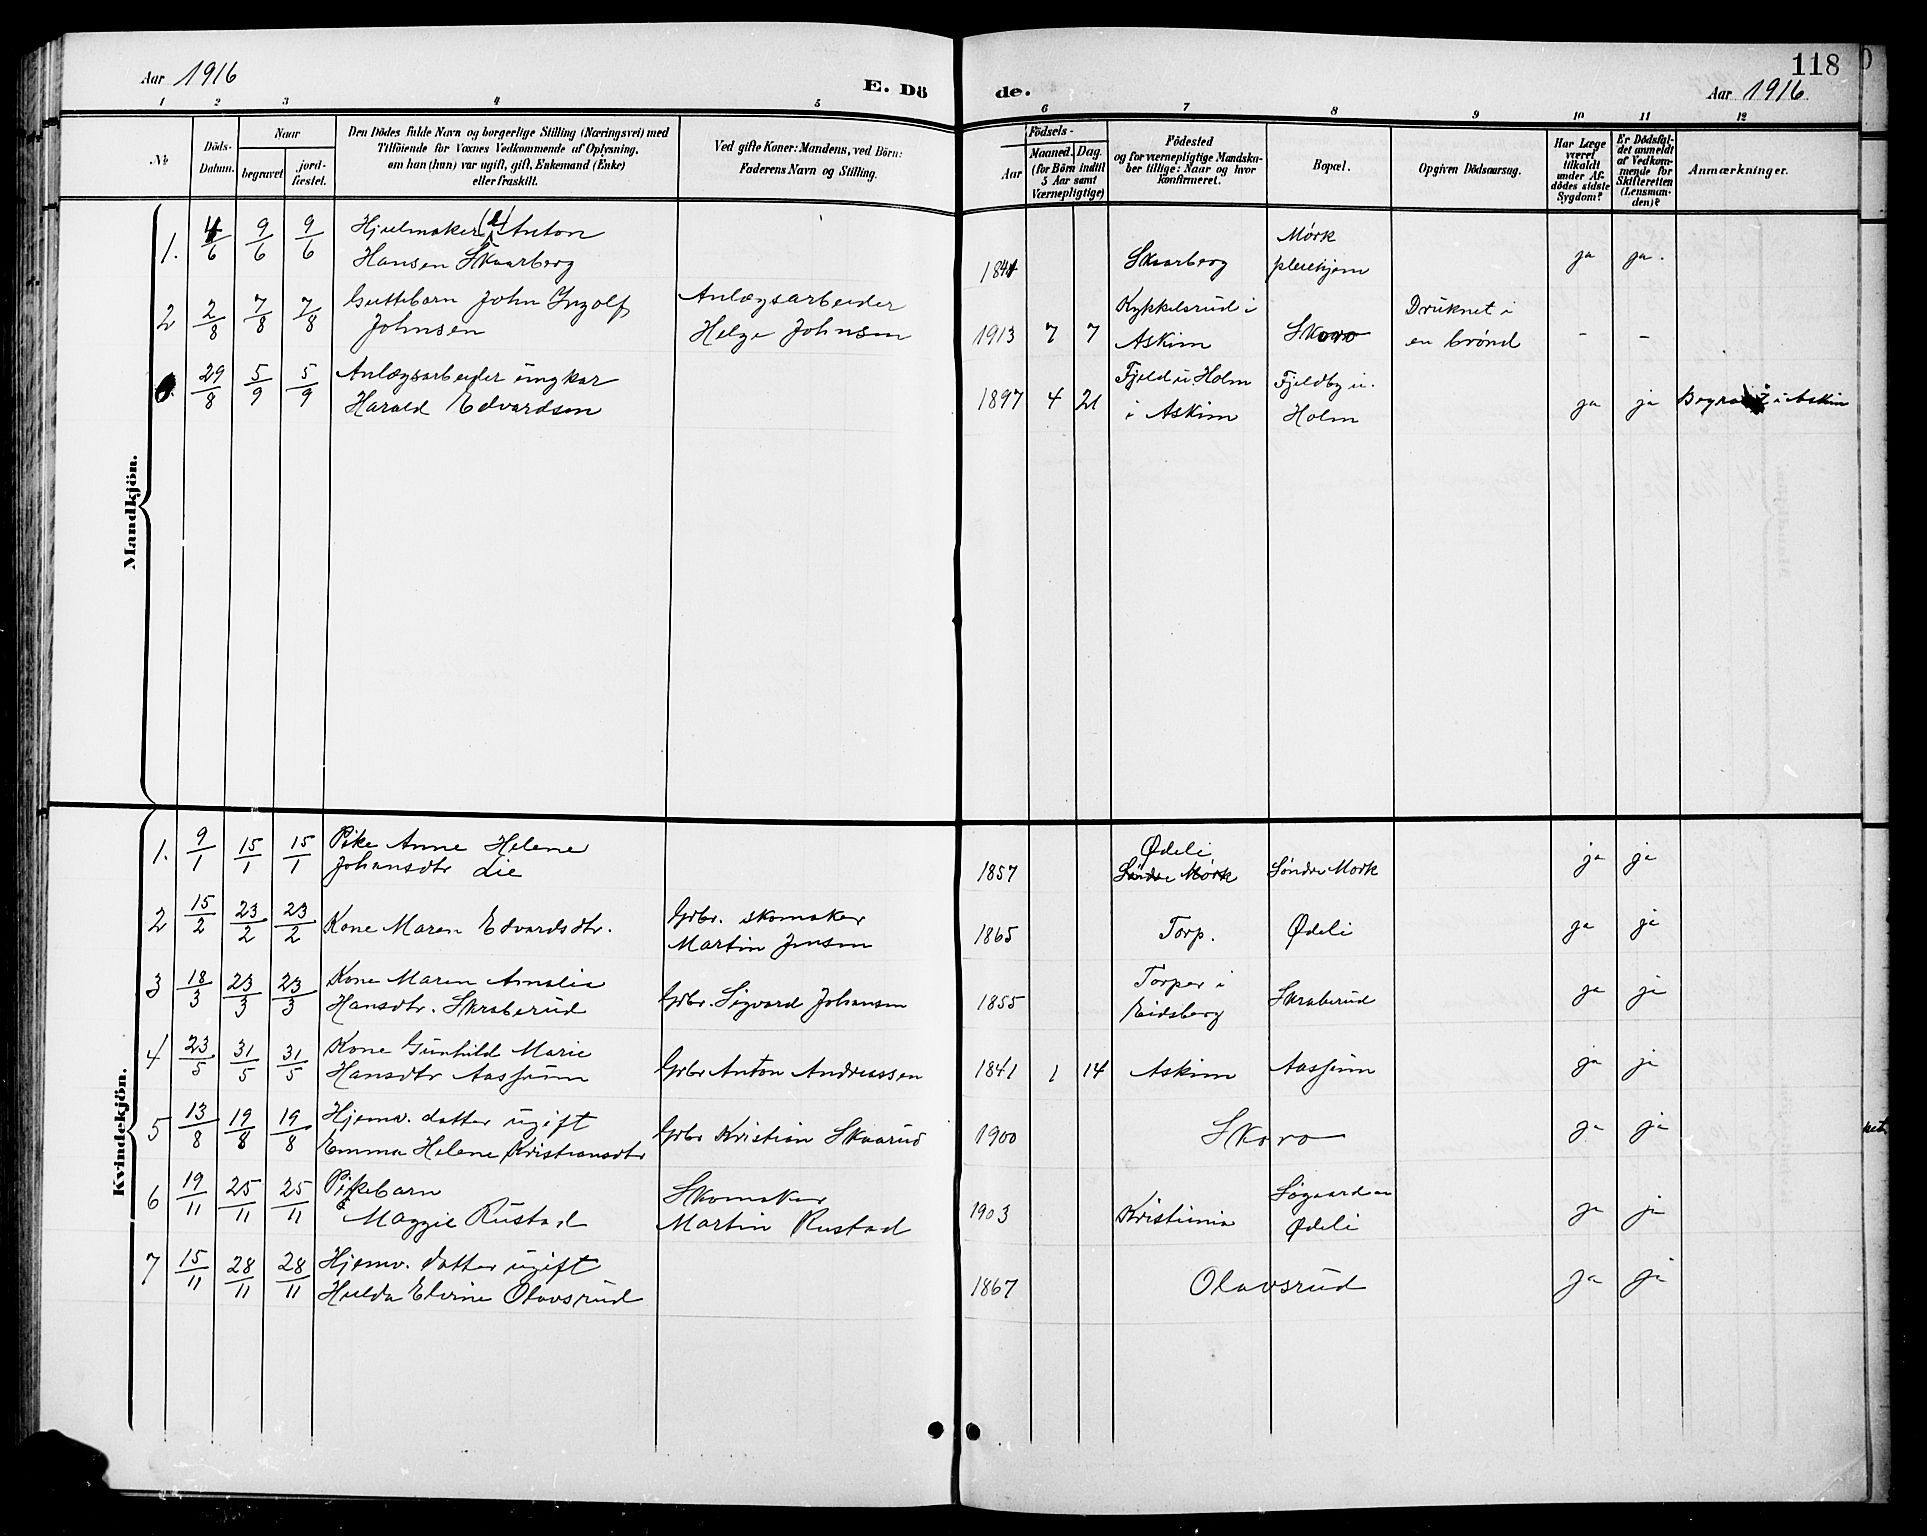 Aar 1916
E. Dö
de.
118
Aar 1916.
1 2 3 4 5 6 7 8 9 10 11 12
No
Döds-
Datum.
Naar
begravet
jord-
fæstet.
Den Dödes fulde Navn og borgerlige Stilling (Næringsvei) med
Tilföiende for Voxnes Vedkommende af Oplysning,
om han (hun) var ugift, gift, Enkemand (Enke)
eller fraskilt.
Ved gifte Koner: Mandens, ved Börn:
Faderens Navn og Stilling.
Födsels-
Aar
Maaned.
Dag.
(for Börn indtil
5 Aar samt
Værnepligtige)
Födested
og for værnepligtige Mandska-
ber tillige: Naar og hvor
konfirmeret.
Bopæl.
Opgiven Dödsaarsag.
Har Læge
været
tilkaldt
under Af-
dödes sidste
Sygdom?
Er Dödsfal-
det anmeldt
af Vedkom-
mende for
Skifteretten
(Lensman-
den)?
Anmærkninger.
Mandkjön.
1. 4/6 9/6 9/6 Hjulmaker Anton
Hansen Skaarberg
1841 Skaarberg
Mørk
pleiehjem
ja ja.
2 2/8 7/8 7/8 Guttebarn John Ingolf
Johnsen
Anlægsarbeider
Helge Johnsen
1913 7 7
Kykkelsrud i
Askim
Skoro
Druknet i
en brønd
- -
29/8 5/9 5/9 Anlægsarbeider ungkar
Harald Edvardsen
1897 4 21
Fjeld u. Holm
i Askim
Fjeldby u.
Holm
ja ja i Askim
Kvindekjön.
1. 9/1 15/1 15/1 Pike Anne Helene
Johansdtr Lie
1857
Ødeli
Søndre Mørk
Søndre Mørk
ja ja
2 15/2 23/2 23/2 Kone Maren Edvardsdtr.
Gbr. skomaker
Martin Jensen
1865 Torp. Ødeli ja ja
3 18/3 23/3 23/3 Kone Maren Amalia
Hansdtr. Skraberud
Gbr. Sigvard Johansen
1855
Torper i
Eidsberg
Skraberud ja ja
4 23/5 31/5 31/5 Kone Gunhild Marie
Hansdtr Aassum
Gbr Anton Andreassen
1841 1 14 Askim Aassum ja ja
5 13/8 19/8 19/8 Hjemv. datter ugift
Emma Helene Kristiansdtr
Gbr Kristian Skaarud
1900 Skoro ja ja
6 19/11 25/11 25/11 Pikebarn
Maggie Rustad
Skomaker
Martin Rustad
1903 Kristiania
Søgaarden
Ødeli
ja ja
7 15/11 28/11 28/11 Hjemv. datter ugift
Hulda Elvine Olavsrud
1867 Olavsrud ja ja